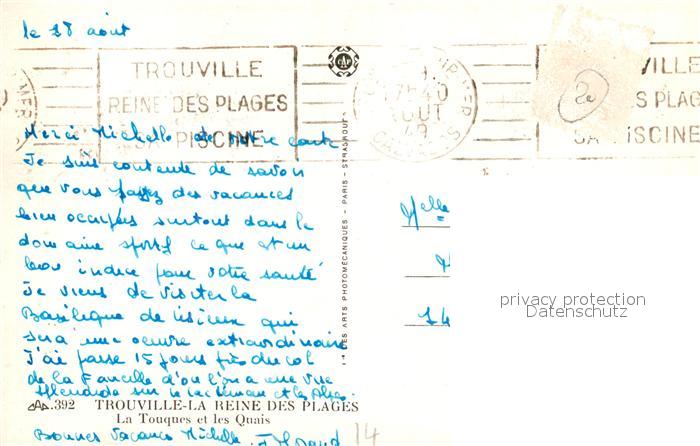 le 28 août
TROUVILLE
REINE DES PLAGES
SA PISCINE
17H40
AOUT
49
VILLE
S PLAG
SA PISCINE
2e
Merci Michelle de votre carte
Je suis contente de savoir
que vous passez des vacances
bien occupées surtout dans le
domaine sportif ce que est un
bon indice pour votre santé
Je viens de visiter la
Basilique de Lisieux qui
sera une oeuvre extraordinaire
J'ai passé 15 jours près du col
de la Faucille d'où l'on a une vue
splendide sur le lac Léman et les Alpes.
CAP.392 TROUVILLE-LA REINE DES PLAGES
La Touques et les Quais
Bonnes vacances Michelle.
14
CAP
Iie DES ARTS PHOTOMÉCANIQUES - PARIS - STRASBOURG
Melle
14
privacy protection
Datenschutz